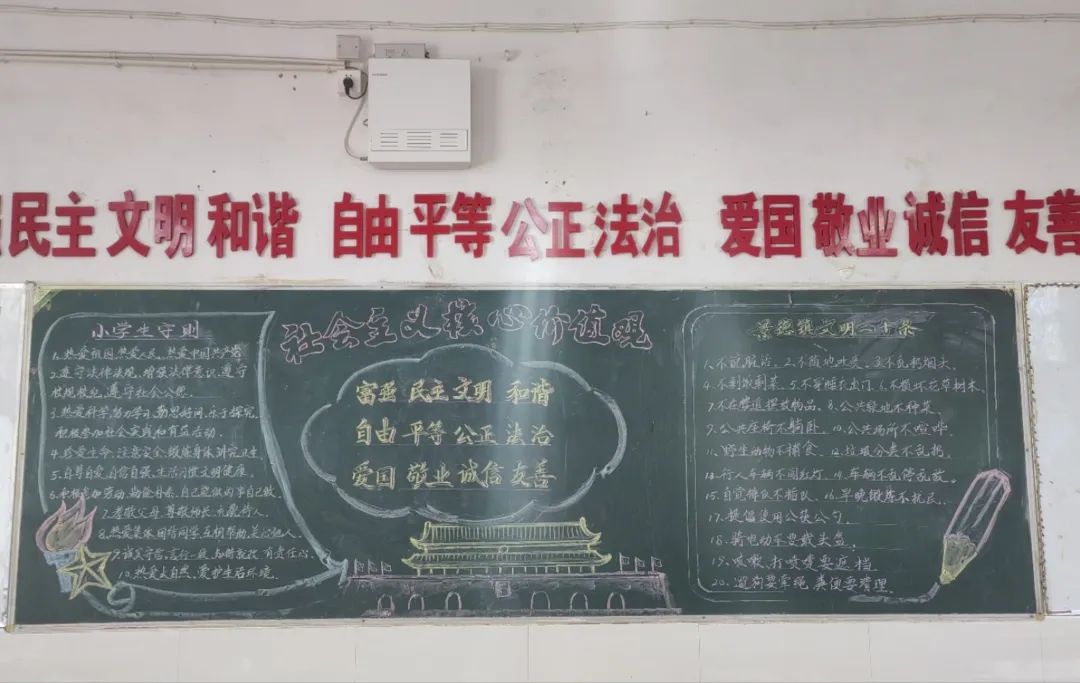 民主 文明 和谐 自由 平等 公正 法治 爱国 敬业 诚信 友善
小学生守则
1.热爱祖国,热爱人民,热爱中国共产党
2.遵守法律法规,增强法律意识,遵守
校规校纪,遵守社会公德.
3.热爱科学,努力学习,勤思好问,乐于探究,
积极参加社会实践和有益活动.
4.珍爱生命,注意安全,锻炼身体,讲究卫生.
5.自尊自爱,自信自强,生活习惯文明健康.
6.积极参加劳动,勤俭,自己能做的事自己做.
7.孝敬父母,尊敬师长,礼貌待人.
8.热爱集体,团结同学,互相帮助,关心他人.
9.诚实守信,言行一致,知错就改,有责任心.
10.热爱大自然,爱护生活环境.
社会主义核心价值观
富强 民主 文明 和谐
自由 平等 公正 法治
爱国 敬业 诚信 友善
景德镇文明二十条
1.不说脏话. 2.不随地吐痰. 3.不乱扔烟头.
4.不剩饭剩菜. 5.不穿睡衣出门. 6.不损坏花草树木.
7.不在楼道摆放物品. 8.公共绿地不种菜.
9.公共座椅不躺卧. 10.公共场所不喧哗.
11.野生动物不捕食. 12.垃圾分类不乱扔.
13.行人车辆不闯红灯. 14.车辆不乱停乱放.
15.自觉排队不插队. 16.早晚锻炼不扰民.
17.提倡使用公筷公勺.
18.骑电动车要戴头盔.
19.咳嗽、打喷嚏要遮挡
20.遛狗要牵绳 粪便要清理.